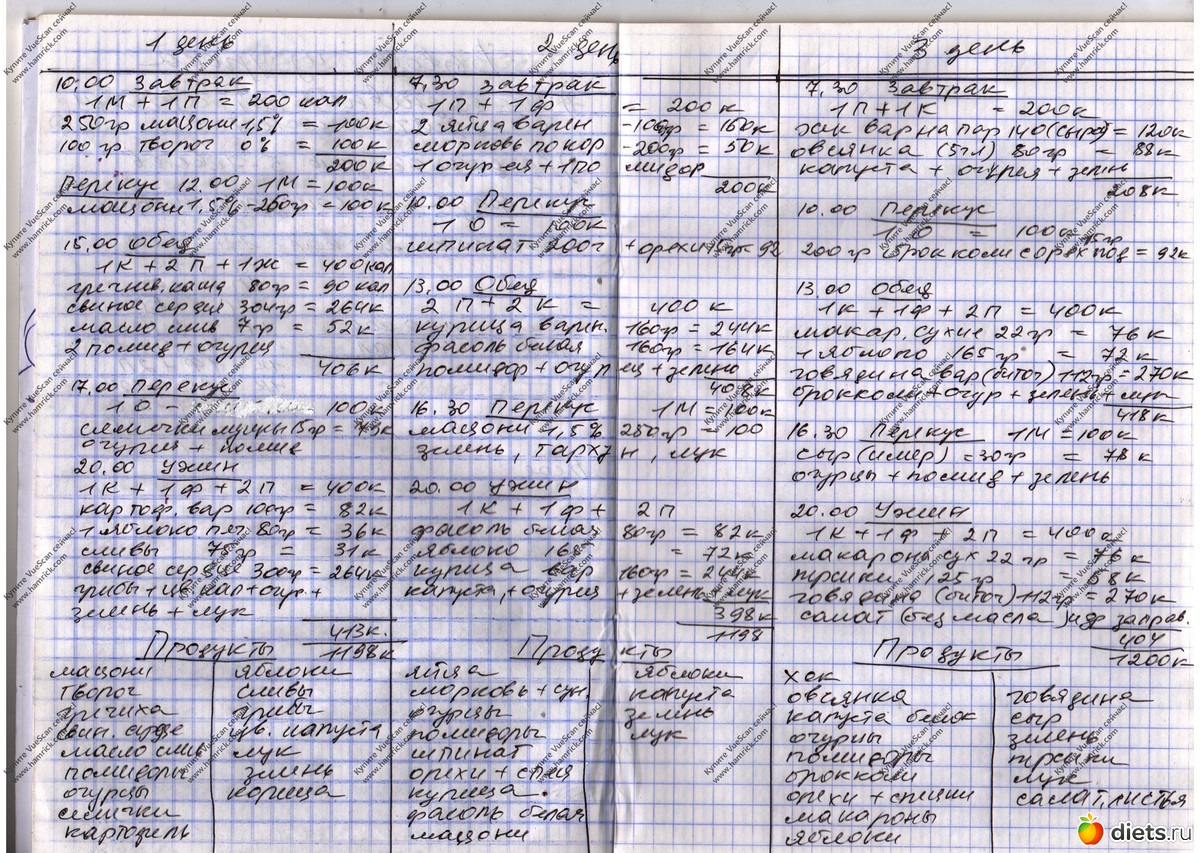 1 день
10.00 Завтрак
1М + 1П = 200 кал
250гр мацони 1,5% = 100к
100 гр творог 0% = 100к
200к
Перекус 12.00 1М = 100к
мацони 1,5% - 250гр = 100к
15.00 Обед
1К + 2П + 1Ж = 400кал
гречнев. каша 80гр = 90 кал
свиное сердце 304гр = 264к
масло слив 7гр = 52к
2 помид + огурец
406к
17.00 Перекус
1 О - 100к
семечки
огурец + помид
20.00 Ужин
1К + 1Ф + 2П = 400к
картоф. вар 100гр = 82к
1 яблоко печ 80гр = 36к
сливы 75гр = 31к
свиное сердце 300гр = 264к
грибы + цв. кар + огур. +
зелень + лук
413к.
1198к
Продукты
мацони
творог
гречиха
свин. сердце
масло слив
помидоры
огурцы
семечки
картофель
яблоки
сливы
грибы
цв. капуста
лук
зелень
корица
2 день
7,30 Завтрак
1П + 1Ф = 200 к
2 яйца варен -100гр = 160к
морковь по кор -200гр = 50к
1 огурец + 1 помидор
200к
10.00 Перекус
1 О = 100к
шпинат 200г + орехи 15гр = 92
13.00 Обед
2 П + 2 К = 400 к
курица варен. 160гр = 244к
фасоль белая 160гр = 164к
помидор + огурец + зелень
408к
16.30 Перекус 1М = 100к
мацони 1,5% 250гр = 100
зелень, тархун, лук
20.00 Ужин
1К + 1Ф + 2П
фасоль белая 80гр = 82к
яблоко 165 = 72к
курица вар 160гр = 244к
капуста, + огурец + зелень + лук
398к
1198
Продукты
яйца
морковь + сун.
огурцы
помидоры
шпинат
орехи + спец
курица
фасоль белая
мацони
яблоки
капуста
зелень
лук
3 день
7,30 Завтрак
1П + 1К = 200к
хек вар на пар 140 (сырой) = 120к
овсянка (5гл) 80гр = 88к
капуста + огурец + зелень
208к
10.00 Перекус
1 О = 100к
200гр брокколи с орех под 15гр = 92к
13.00 Обед
1К + 1Ф + 2П = 400к
макар. сухие 22гр = 76к
1 яблоко 165гр = 72к
говядина вар (биточ) 112гр = 270к
брокколи + огур + зелень + лук
418к
16.30 Перекус 1М = 100к
сыр (имер) = 30гр = 78к
огурцы + помид + зелень
20.00 Ужин
1К + 1Ф + 2П = 400к
макароны сух 22гр = 76к
125гр = 58к
говядина (биточ) 112гр = 270к
салат (без масла) заправ.
404
1200к
Продукты
хек
овсянка
капуста белок
огурцы
помидоры
брокколи
орехи + специи
макароны
яблоки
говядина
сыр
зелень
лук
салат, листья
Купите VueScan сейчас!
www.hamrick.com
diets.ru